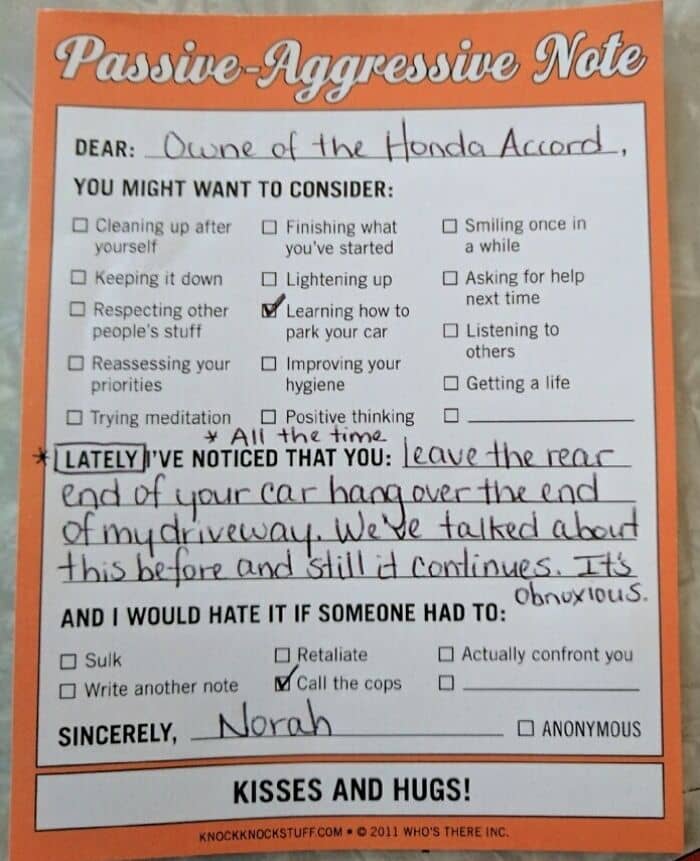 Passive-Aggressive Note
DEAR: Owne of the Honda Accord,
YOU MIGHT WANT TO CONSIDER:
☐ Cleaning up after yourself
☐ Keeping it down
☐ Respecting other people's stuff
☐ Reassessing your priorities
☐ Trying meditation
☐ Finishing what you've started
☐ Lightening up
☑ Learning how to park your car
☐ Improving your hygiene
☐ Positive thinking
☐ Smiling once in a while
☐ Asking for help next time
☐ Listening to others
☐ Getting a life
☐
* All the time
* LATELY I'VE NOTICED THAT YOU: leave the rear
end of your car hang over the end
of my driveway. We've talked about
this before and still it continues. It's
obnoxious.
AND I WOULD HATE IT IF SOMEONE HAD TO:
☐ Sulk ☐ Retaliate ☐ Actually confront you
☐ Write another note ☑ Call the cops ☐
SINCERELY, Norah ☐ ANONYMOUS
KISSES AND HUGS!
KNOCKKNOCKSTUFF.COM • © 2011 WHO'S THERE INC.